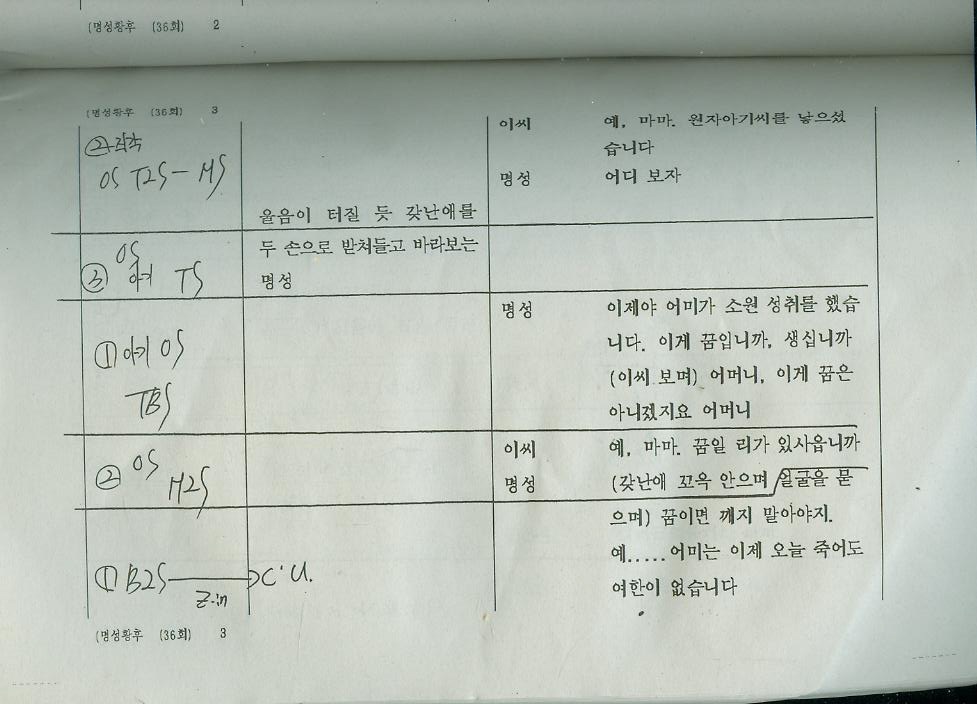 (명성황후 (36회) 2
(명성황후 (36회) 3
②
OS T2S — MS
이씨 예, 마마. 원자아기씨를 낳으셨
습니다
명성 어디 보자
울음이 터질 듯 갖난애를
OS
③ 아기 TS
두 손으로 받쳐들고 바라보는
명성
① 아기 OS
TBS
명성 이제야 어미가 소원 성취를 했습
니다. 이게 꿈입니까, 생십니까
(이씨 보며) 어머니, 이게 꿈은
아니겠지요 어머니
② OS
M2S
이씨 예, 마마. 꿈일 리가 있사옵니까
명성 (갖난애 꼬옥 안으며 얼굴을 묻
으며) 꿈이면 깨지 말아야지.
예..... 어미는 이제 오늘 죽어도
여한이 없습니다
① B2S C·U.
Z·in
(명성황후 (36회) 3